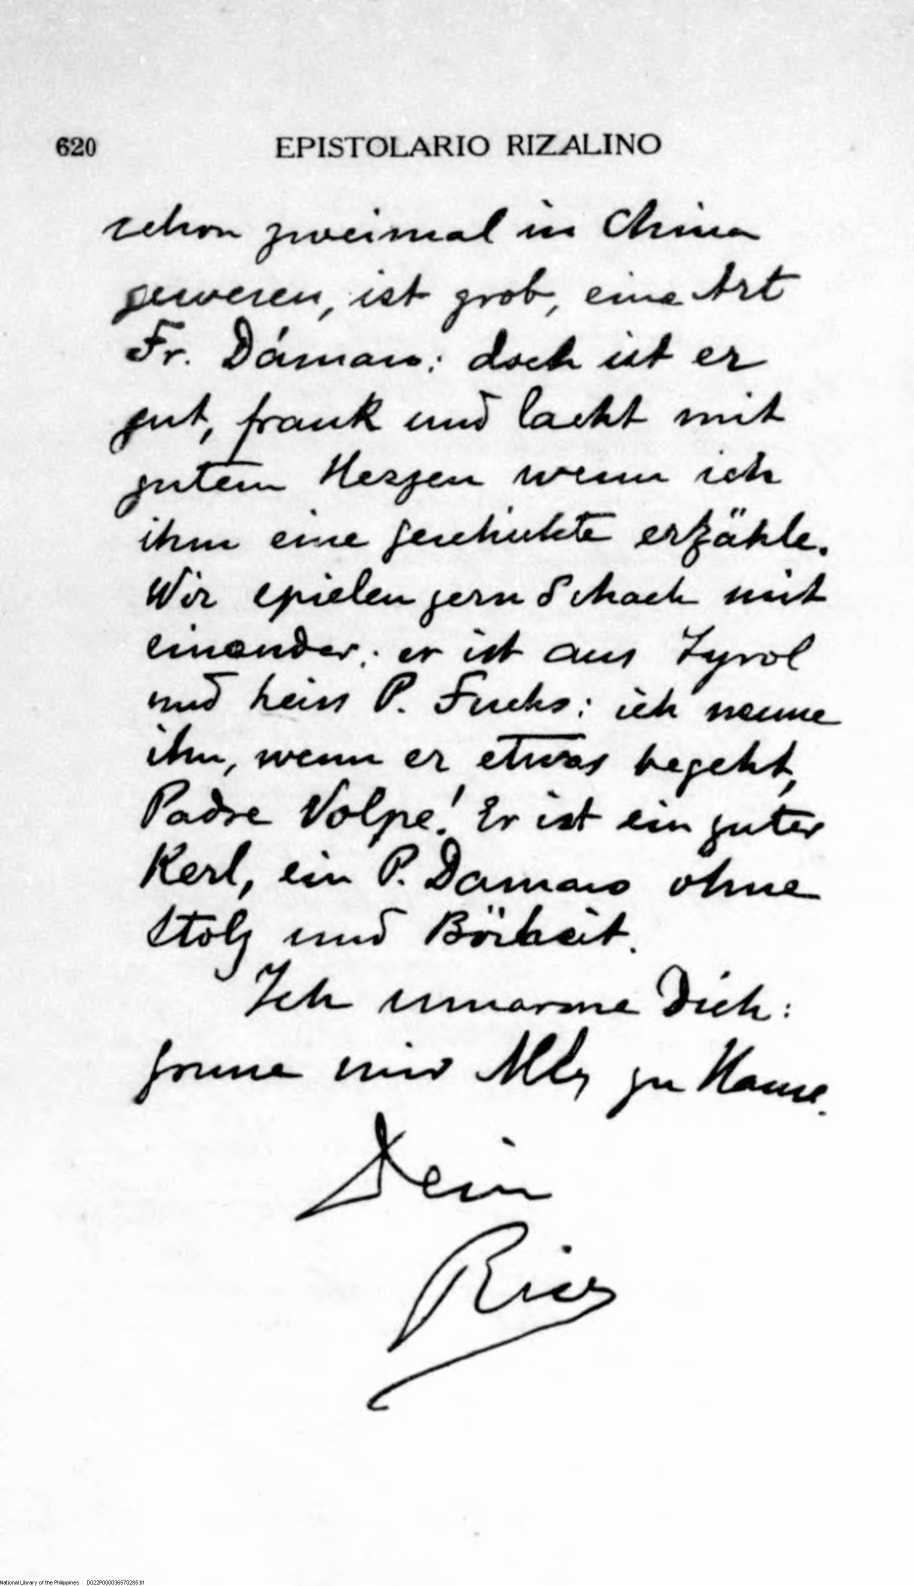 620 EPISTOLARIO RIZALINO
schon zweimal in China
gewesen, ist grob, eine Art
Fr. Dámaso; doch ist er
gut, frank und lacht mit
gutem Herzen wenn ich
ihm eine geschichte erzähle.
Wir spielen gern Schach mit
einander; er ist aus Tyrol
und heiss P. Fuchs; ich nenne
ihn, wenn er etwas begeht,
Padre Volpe! Er ist ein guter
Kerl, ein P. Damaso ohne
Stolz und Bösheit.
Ich umarme Dich:
grusse mir Alles zu Hause.
Dein
National Library of the Philippines